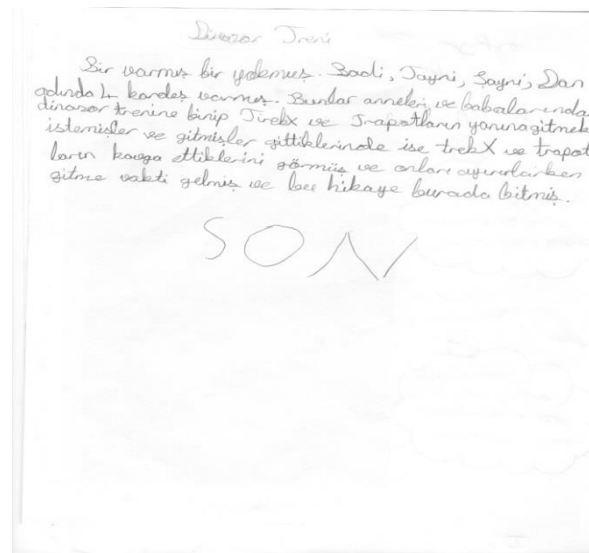 Dinozor Treni
Bir varmış bir yokmuş. Badi, Tayni, Şayni, Dan
adında 4 kardeş varmış. Bunlar anneleri ve babalarında
dinozor trenine binip TirekX ve Trapotların yanına gitmek
istemişler ve gitmişler gittiklerinde ise trekX ve trapot
ların kavga ettiklerini görmüş ve onları ayırırlarken
gitme vakti gelmiş ve bu hikaye burada bitmiş.
SON